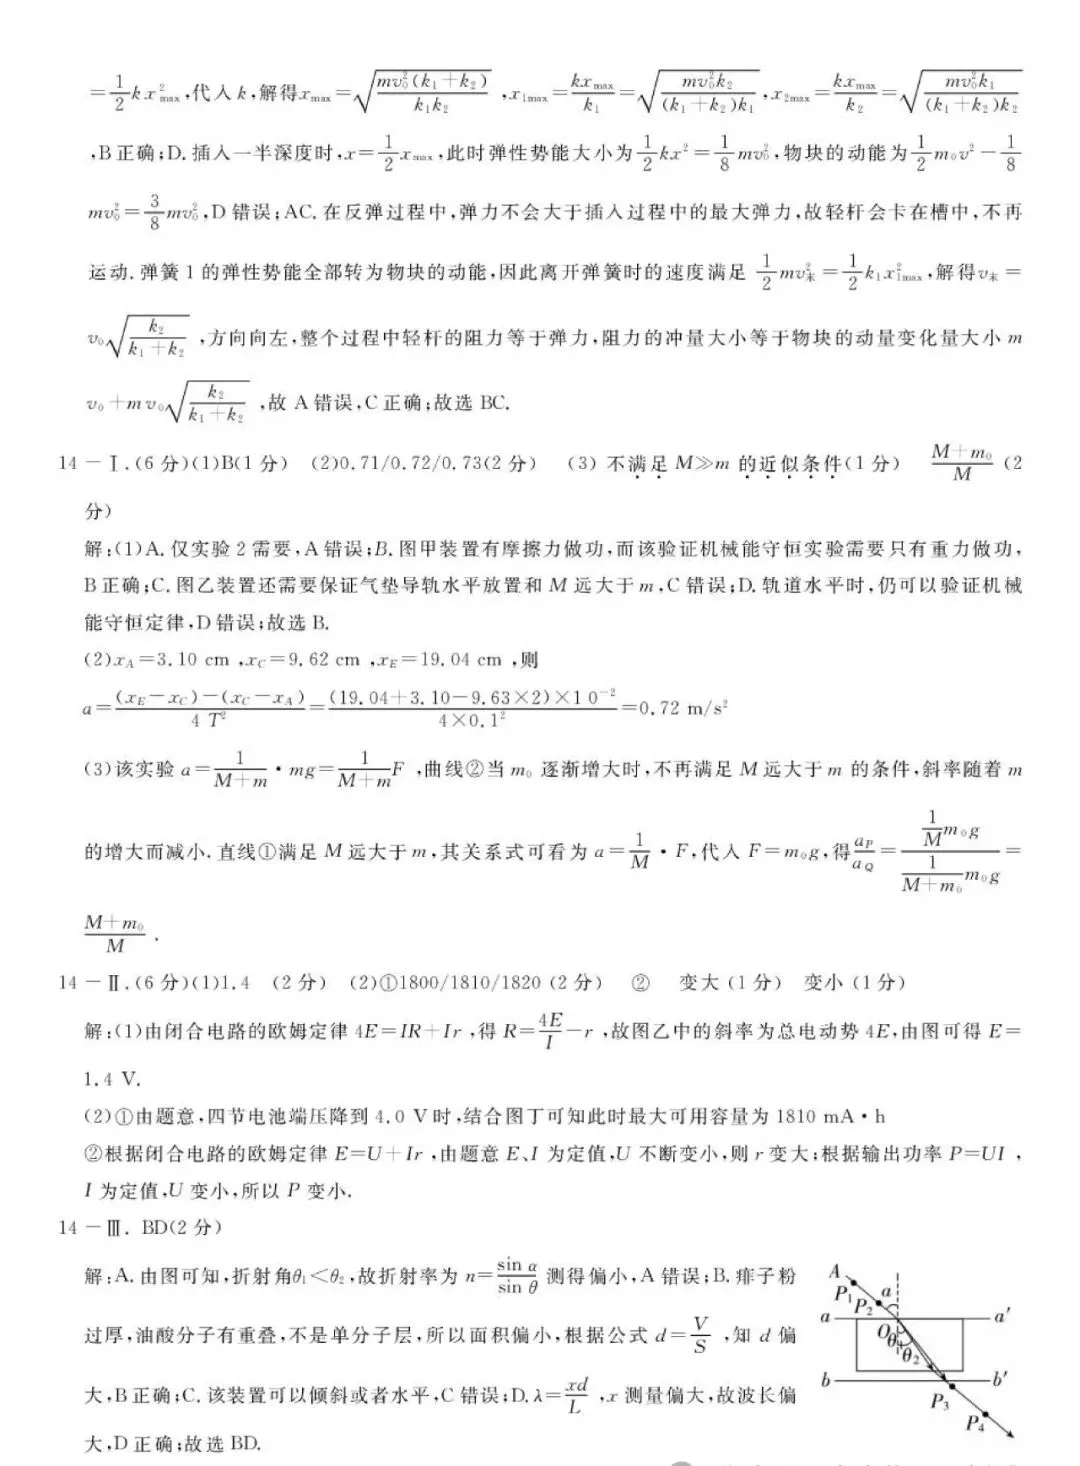 =1/2 k x²_max,代入 k,解得x_max=√(mv₀²(k₁+k₂)/k₁k₂),x_1max=kx_max/k₁=√(mv₀²k₂/(k₁+k₂)k₁),x_2max=kx_max/k₂=√(mv₀²k₁/(k₁+k₂)k₂)
,B正确;D. 插入一半深度时,x=1/2 x_max,此时弹性势能大小为1/2 kx²=1/8 mv₀²,物块的动能为1/2 m₀v²-1/8
mv₀²=3/8 mv₀²,D错误;AC. 在反弹过程中,弹力不会大于插入过程中的最大弹力,故轻杆会卡在槽中,不再
运动. 弹簧 1 的弹性势能全部转为物块的动能,因此离开弹簧时的速度满足 1/2 mv末²=1/2 k₁x²_1max,解得v末=
v₀√(k₂/(k₁+k₂)),方向向左,整个过程中轻杆的阻力等于弹力,阻力的冲量大小等于物块的动量变化量大小 m
v₀+mv₀√(k₂/(k₁+k₂)),故 A错误,C正确;故选 BC.
14-Ⅰ.(6分)(1)B(1分) (2)0.71/0.72/0.73(2分) (3) 不满足 M≫m 的近似条件(1分) (M+m₀)/M (2
分)
解:(1)A. 仅实验 2 需要,A错误;B. 图甲装置有摩擦力做功,而该验证机械能守恒实验需要只有重力做功,
B正确;C. 图乙装置还需要保证气垫导轨水平放置和 M 远大于 m,C错误;D. 轨道水平时,仍可以验证机械
能守恒定律,D错误;故选 B.
(2)x_A=3.10 cm,x_C=9.62 cm,x_E=19.04 cm,则
a=((x_E-x_C)-(x_C-x_A))/4T²=((19.04+3.10-9.63×2)×10⁻²)/(4×0.1²)=0.72 m/s²
(3)该实验 a=1/(M+m)·mg=1/(M+m)F,曲线②当 m₀ 逐渐增大时,不再满足 M 远大于 m 的条件,斜率随着 m
的增大而减小. 直线①满足 M 远大于 m,其关系式可看为 a=1/M·F,代入 F=m₀g,得a_P/a_Q=(1/M m₀g)/(1/(M+m₀) m₀g)=
(M+m₀)/M.
14-Ⅱ.(6分)(1)1.4 (2分) (2)①1800/1810/1820(2分) ② 变大(1分) 变小(1分)
解:(1)由闭合电路的欧姆定律 4E=IR+Ir,得 R=4E/I-r,故图乙中的斜率为总电动势 4E,由图可得 E=
1.4 V.
(2)①由题意,四节电池端压降到 4.0 V时,结合图丁可知此时最大可用容量为 1810 mA·h
②根据闭合电路的欧姆定律 E=U+Ir,由题意 E、I 为定值,U 不断变小,则 r 变大;根据输出功率 P=UI,
I 为定值,U 变小,所以 P 变小.
14-Ⅲ. BD(2分)
解:A. 由图可知,折射角θ₁<θ₂,故折射率为 n=sin α/sin θ 测得偏小,A错误;B. 痱子粉
过厚,油酸分子有重叠,不是单分子层,所以面积偏小,根据公式 d=V/S,知 d 偏
大,B正确;C. 该装置可以倾斜或者水平,C错误;D. λ=xd/L,x 测量偏大,故波长偏
大,D正确;故选 BD.
A
P₁
P₂
α
a
a′
O
θ₁
θ₂
b
b′
P₃
P₄